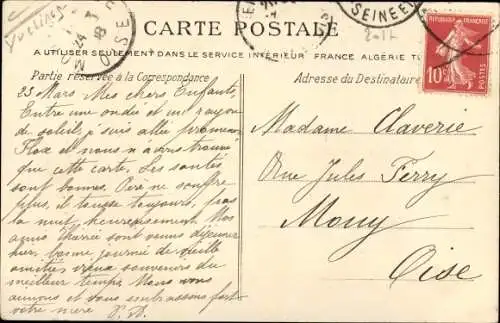 CARTE POSTALE
A UTILISER SEULEMENT DANS LE SERVICE INTÉRIEUR FRANCE ALGERIE
Partie réservée à la Correspondance
Adresse du Destinataire
REPUBLIQUE FRANÇAISE
10c
POSTES
OISE
24
SEINE ET
23 Mars Mes chers Enfants,
Entre une ondée et un rayon
de soleil, j'suis allée promener
et nous n'avons trouvé
que cette carte. Les santés
sont bonnes. Père ne souffre
plus, il tousse toujours, pas
la nuit heureusement Nos
amis sont venus déjeuner
hier bonne journée de vieille
amitiés vieux souvenirs du
meilleur temps. Nous vous
aimons et vous embrassons fort
votre mère
Madame Claverie
Rue Jules Ferry
Mouy
Oise